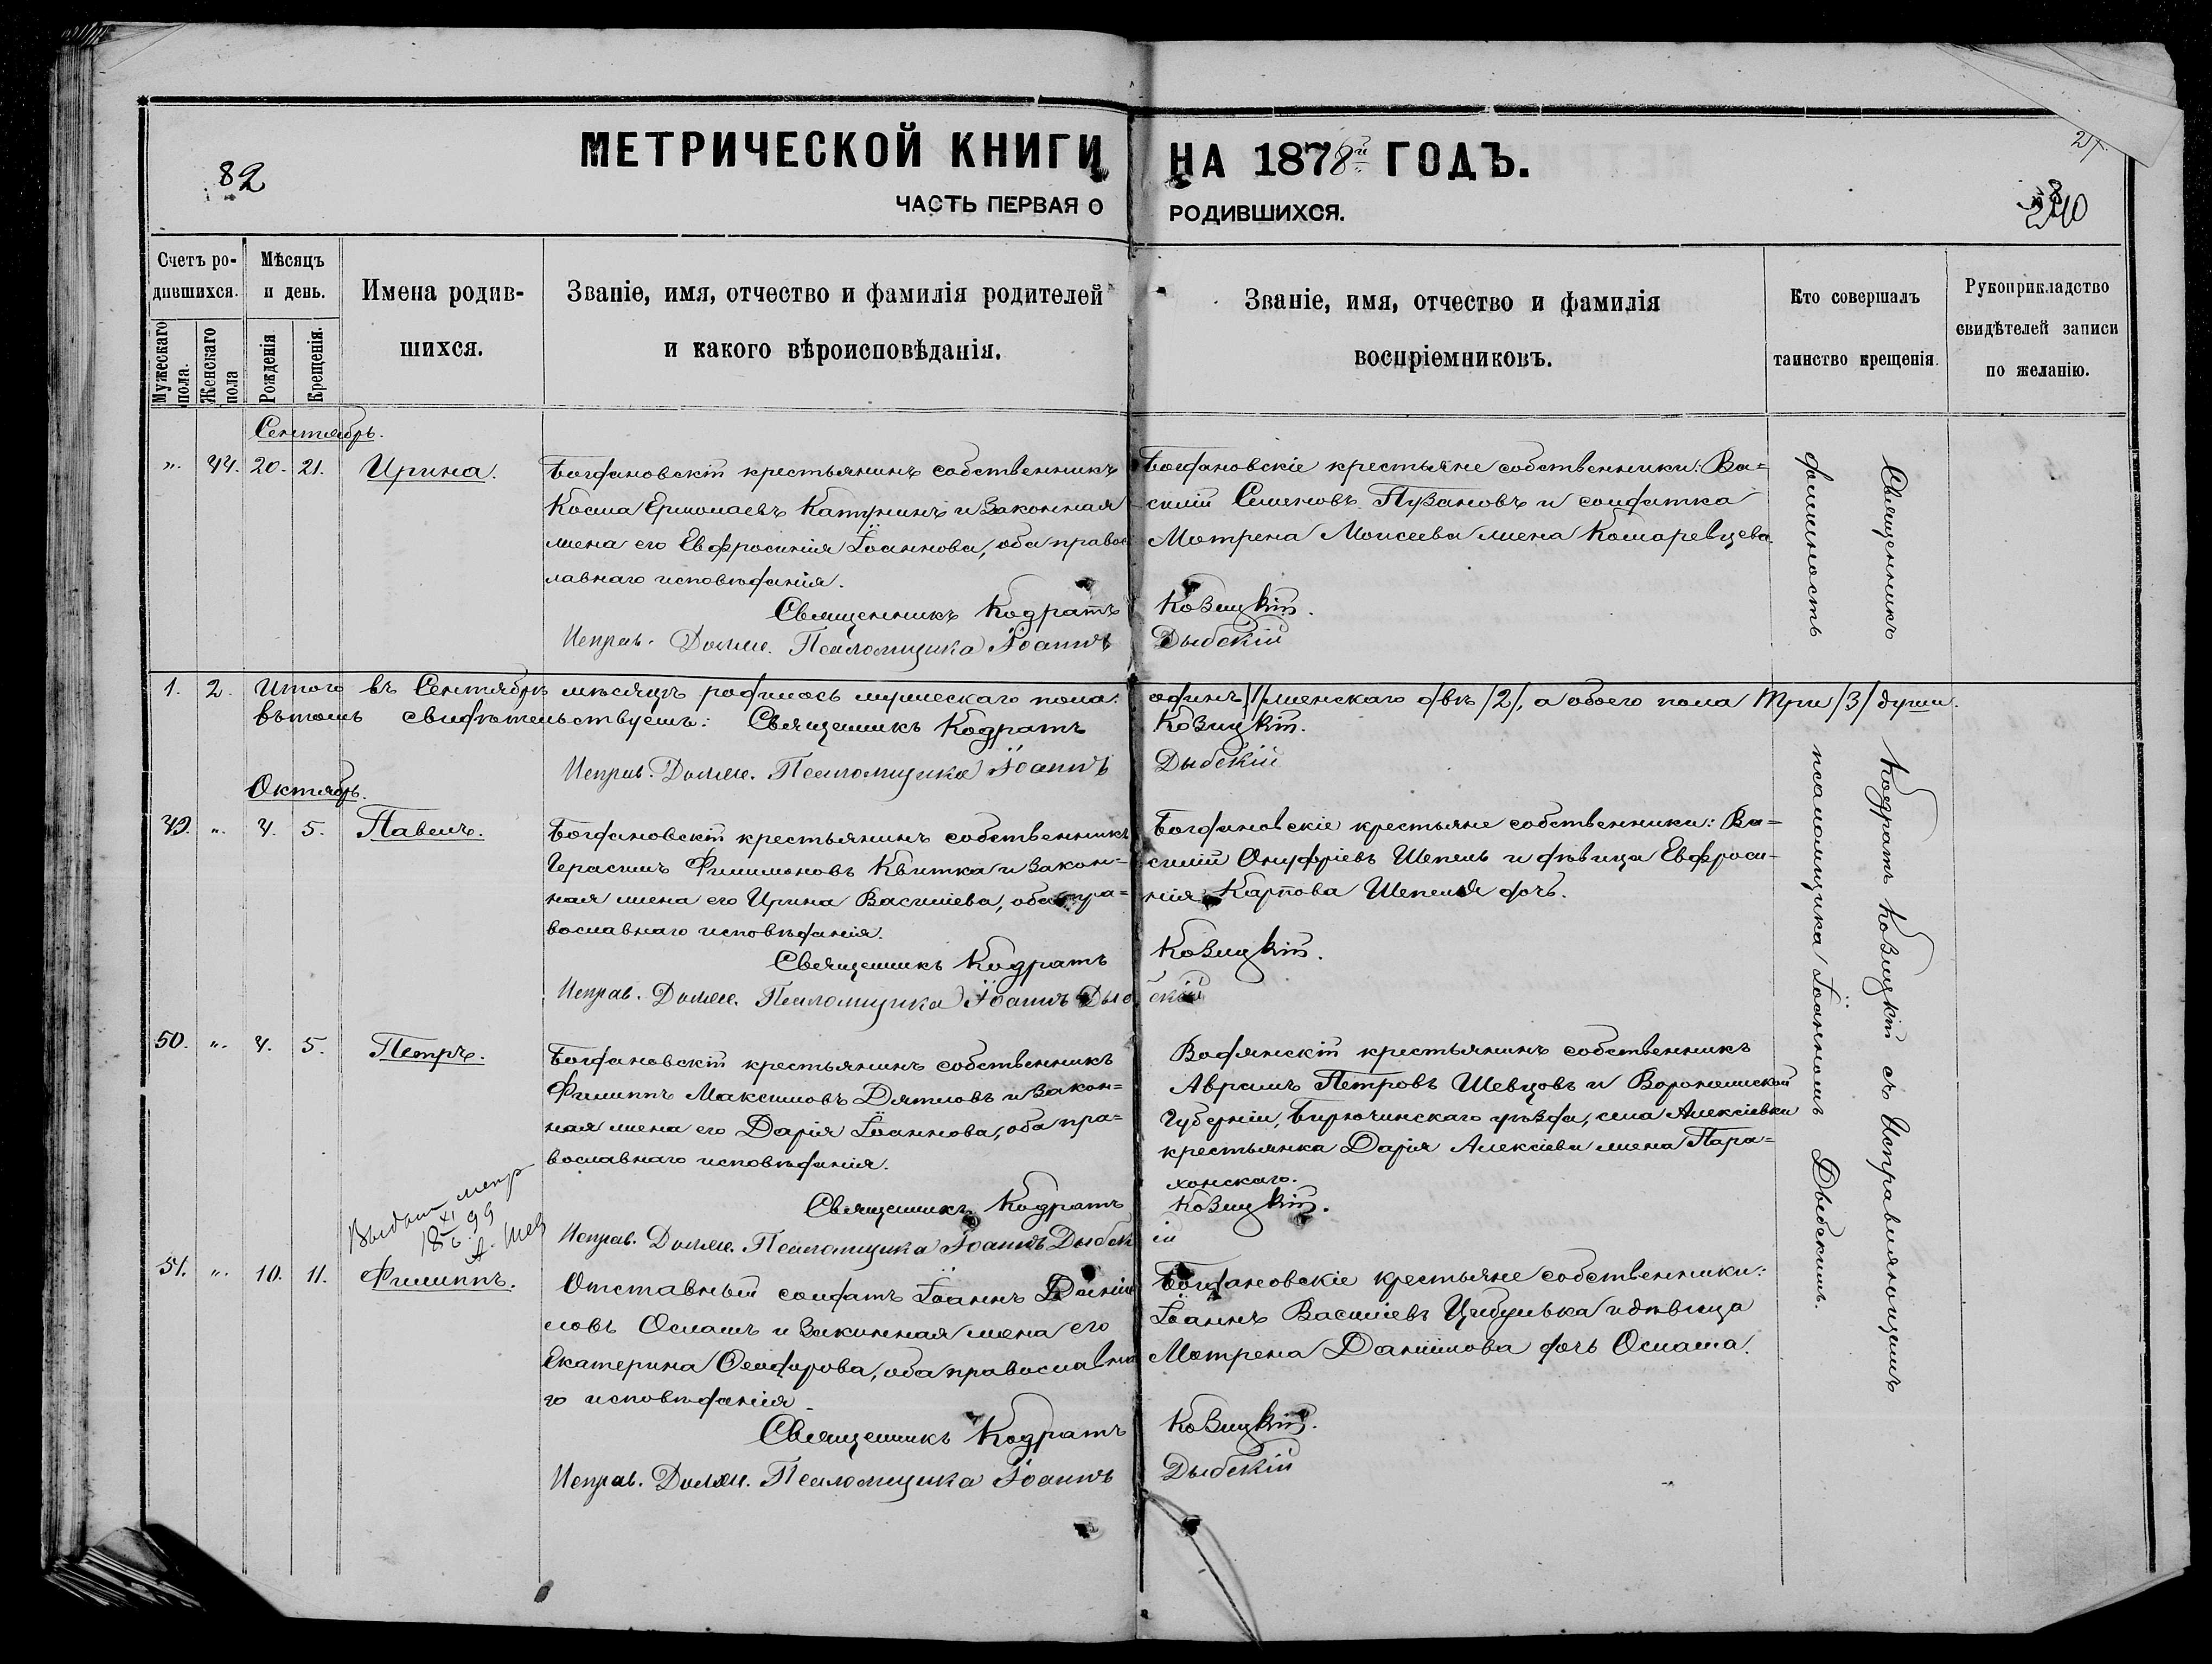 МЕТРИЧЕСКОЙ КНИГИ НА 1878й ГОДЪ.
82
ЧАСТЬ ПЕРВАЯ О РОДИВШИХСЯ.
Счетъ родившихся.
Мужескаго пола.
Женскаго пола
Мѣсяцъ и день.
Рожденія
Крещенія.
Имена родив-
шихся.
Званіе, имя, отчество и фамилія родителей
и какого вѣроисповѣданія.
Званіе, имя, отчество и фамилія
воспріемниковъ.
Кто совершалъ
таинство крещенія.
Рукоприкладство
свидѣтелей записи
по желанію.
Сентябрь.
". 44. 20. 21. Ирина.
Богдановскій крестьянинъ собственникъ
Косма Ермолаевъ Катунинъ и законная
жена его Евфросинія Іоаннова, оба правос
лавнаго исповѣданія.
Богдановскіе крестьяне собственники: Ва=
силій Семеновъ Пузановъ и солдатка
Мотрена Моисеева жена Комаревцева.
Священникъ Кодратъ Козицкій.
Исправ. Должн. Псаломщика Іоаннъ Дыбскій
1. 2. Итого въ Сентябрѣ мѣсяцѣ родилось мужескаго пола: одинъ /1/ женскаго двѣ /2/, а обоего пола три /3/ души.
Въ томъ свидѣтельствуемъ: Священникъ Кодратъ Козицкій.
Исправ. Должн. Псаломщика Іоаннъ Дыбскій
Октябрь.
49. ". 4. 5. Павелъ.
Богдановскій крестьянинъ собственникъ
Герасимъ Филимоновъ Квитка и закон=
ная жена его Ирина Василіева, оба пра=
вославнаго исповѣданія.
Богдановскіе крестьяне собственники: Ва=
силій Онуфріевъ Шепель и дѣвица Евфроси-
нія Карпова Шепеля дочь.
Священникъ Кодратъ Козицкій.
Исправ. Должн. Псаломщика Іоаннъ Дыбскій
50. ". 4. 5. Петръ.
Богдановскій крестьянинъ собственникъ
Филиппъ Максимовъ Дятловъ и закон=
ная жена его Дарія Іоаннова, оба пра=
вославнаго исповѣданія.
Водянскій крестьянинъ собственникъ
Аврамъ Петровъ Шевцовъ и Воронежской
Губерніи, Бирючинскаго уѣзда, села Алексіевки
крестьянка Дарія Алексіева жена Пара=
хонскаго.
Священникъ Кодратъ Козицкій.
Исправ. Должн. Псаломщика Іоаннъ Дыбскій
Выдана метр
51. ". 10. 11. Филиппъ.
Отставный солдатъ Іоаннъ Даніи
ловъ Осматъ и законная жена его
Екатерина Феодорова, оба православна
го исповѣданія.
Богдановскіе крестьяне собственники:
Іоаннъ Василіевъ Цибулька и дѣвица
Мотрена Даніилова дочь Осмата.
Священникъ Кодратъ Козицкій.
Исправ. Должн. Псаломщика Іоаннъ Дыбскій
Священникъ Кодратъ Козицкій съ Исправляющимъ
должность псаломщика Іоанномъ Дыбскимъ.